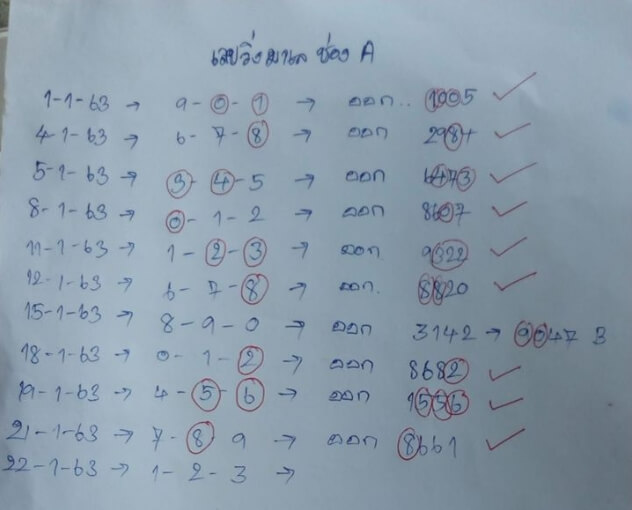 เลขวิ่งมาเล ช่อง A
1-1-63 → 9-0-1 → ออก.. 1005
4-1-63 → 6-7-8 → ออก 298+
5-1-63 → 3-4-5 → ออก 6473
8-1-63 → 0-1-2 → ออก 8607
11-1-63 → 1-2-3 → ออก. 9322
12-1-63 → 6-7-8 → ออก. 8820
15-1-63 → 8-9-0 → ออก 3142 → 9047 3
18-1-63 → 0-1-2 → ออก 8682
19-1-63 → 4-5-6 → ออก 1556
21-1-63 → 7-8 9 → ออก 8661
22-1-63 → 1-2-3 →